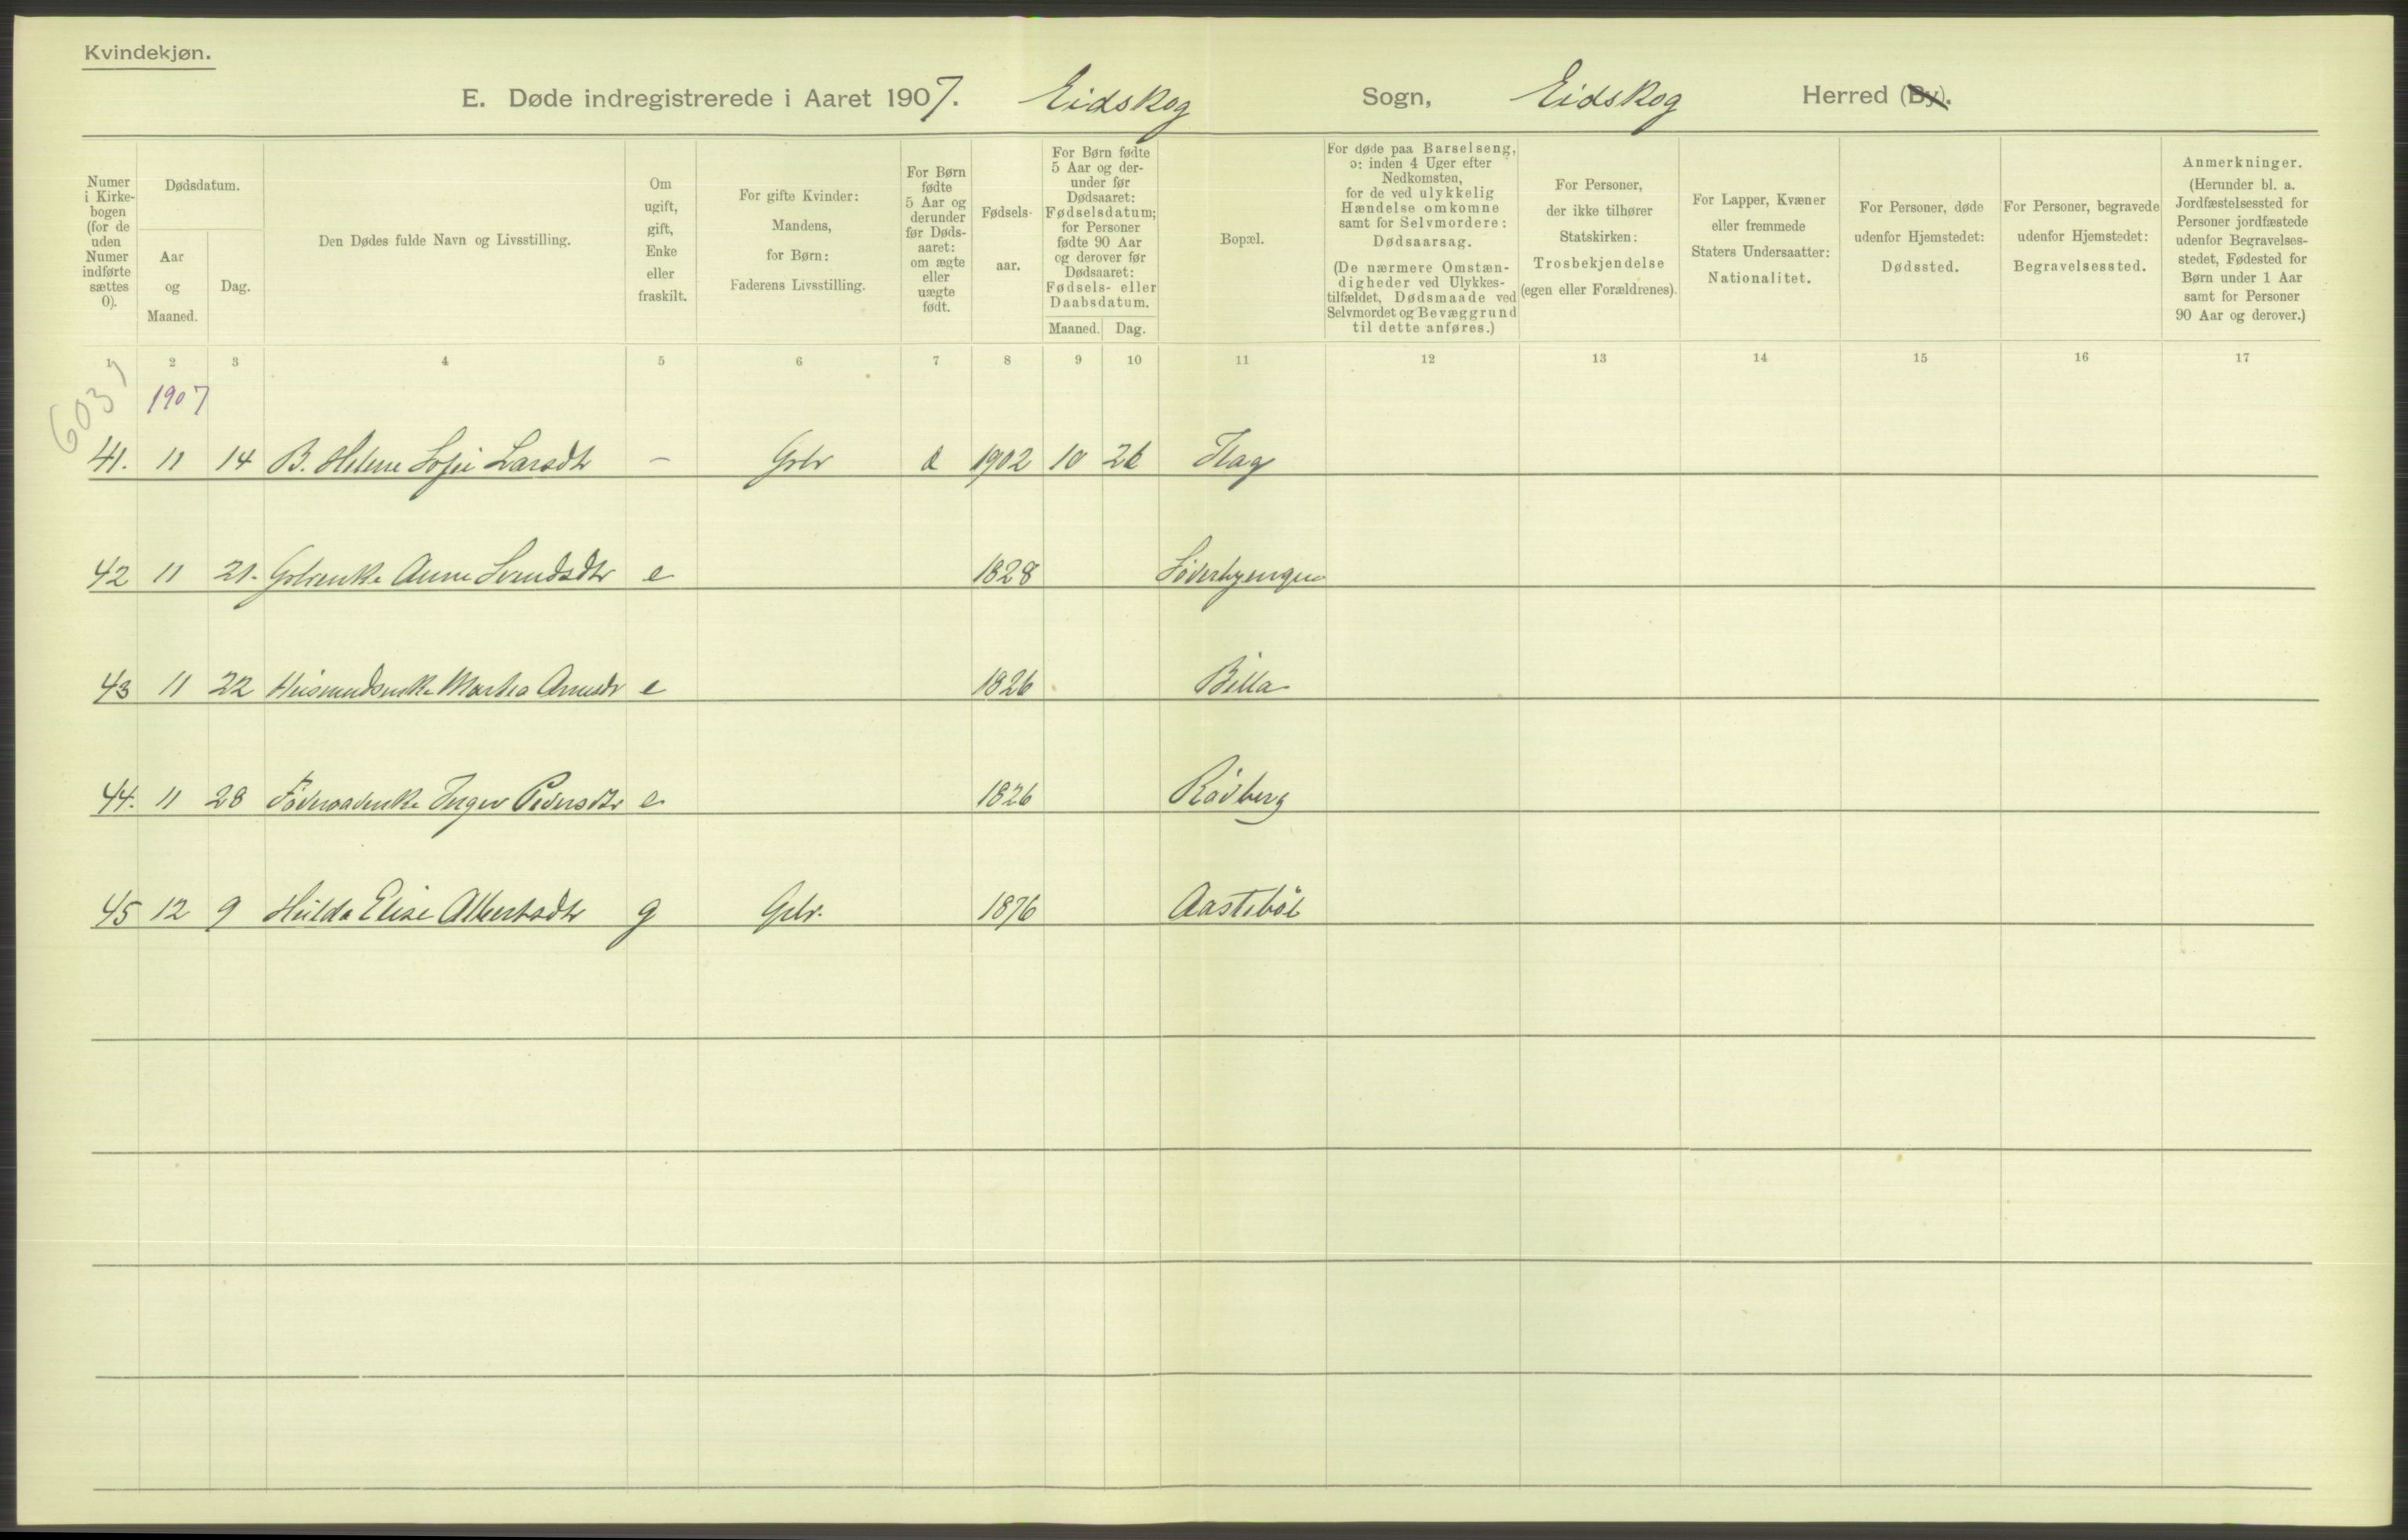 Kvindekjøn.
E. Døde indregistrerede i Aaret 1907. Eidskog Sogn, Eidskog Herred (By).
Numer i Kirke-bogen (for de uden Numer indførte sættes 0).
Dødsdatum.
Aar og Maaned.
Dag.
Den Dødes fulde Navn og Livsstilling.
Om ugift, gift, Enke eller fraskilt.
For gifte Kvinder: Mandens, for Børn: Faderens Livsstilling.
For Børn fødte 5 Aar og derunder før Døds-aaret: om ægte eller uægte født.
Fødsels-aar.
For Børn fødte 5 Aar og der-under før Dødsaaret: Fødselsdatum; for Personer fødte 90 Aar og derover før Dødsaaret: Fødsels- eller Daabsdatum.
Maaned. Dag.
Bopæl.
For døde paa Barselseng, ɔ: inden 4 Uger efter Nedkomsten, for de ved ulykkelig Hændelse omkomne samt for Selvmordere: Dødsaarsag. (De nærmere Omstæn-digheder ved Ulykkes-tilfældet, Dødsmaade ved Selvmordet og Bevæggrund til dette anføres.)
For Personer, der ikke tilhører Statskirken: Trosbekjendelse (egen eller Forældrenes).
For Lapper, Kvæner eller fremmede Staters Undersaatter: Nationalitet.
For Personer, døde udenfor Hjemstedet: Dødssted.
For Personer, begravede udenfor Hjemstedet: Begravelsessted.
Anmerkninger. (Herunder bl. a. Jordfæstelsessted for Personer jordfæstede udenfor Begravelses-stedet, Fødested for Børn under 1 Aar samt for Personer 90 Aar og derover.)
1 2 3 4 5 6 7 8 9 10 11 12 13 14 15 16 17
603)
1907
41. 11 14 B. Helene Sofie Larsdtr – Gbr 1902 10 26 Hag
42 11 21. Anne Svendsdtr e 1828
43 11 22 Husmandsenke Marthea e 1826 Billa
44. 11 28 Føderaadenke Inger Pedersdtr e 1826 Rødberg
45 12 9 Hulda Elise Albertsdtr g Gbr. 1876 Aastebøl